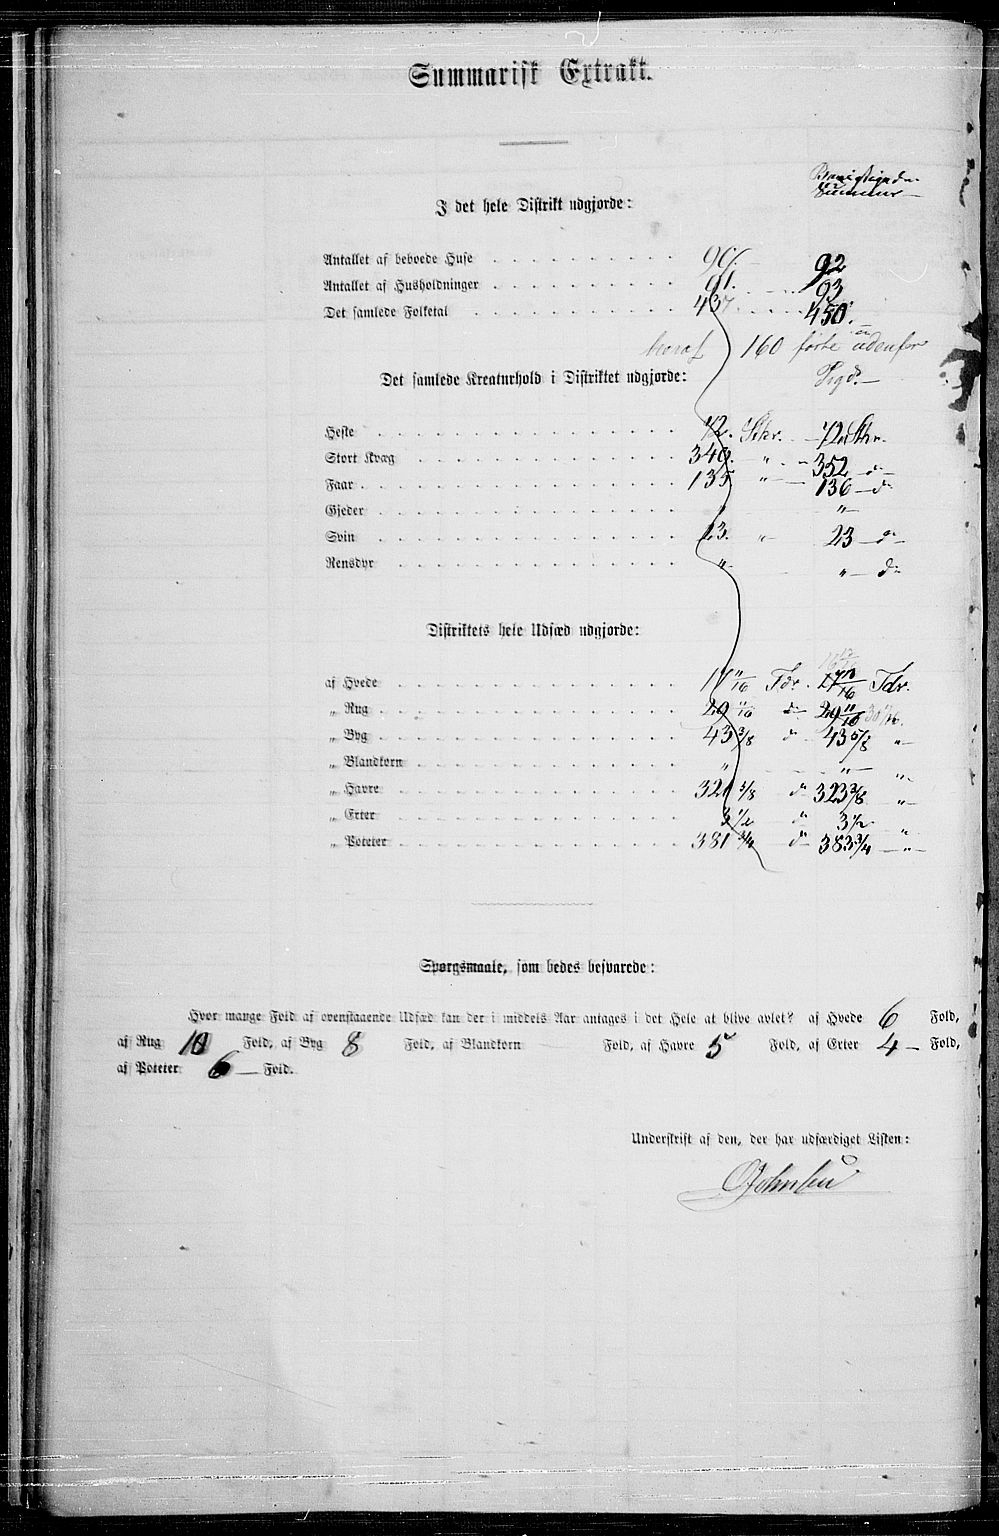 Summarisk Extrakt.
Summer
I det hele Distrikt udgjorde:
Antallet af beboede Huse 90. 92
Antallet af Husholdninger 91. 93
Det samlede Folketal 437 450.
hvoraf 160 førte udenfor
Det samlede Kreaturhold i Distriktet udgjorde:
Heste 72. Stkr. 72 Stkr.
Stort Kvæg 349. " 352 d
Faar 135 " 136 d
Gjeder " "
Svin 23. " 23 d
Rensdyr " " d
Distriktets hele Udsæd udgjorde:
af Hvede 17 11/16 Tdr. Tdr.
„ Rug 29 11/16 d 29 11/16
„ Byg 43 3/8 d 43 5/8 "
„ Blandkorn " " "
„ Havre 321 d 323 3/8 "
„ Erter 3 1/2 d 3 1/2 "
„ Poteter 381 3/4 d 383 3/4 "
Spørgsmaale, som bedes besvarede:
Hvor mange Fold af ovenstaaende Udsæd kan der i middels Aar antages i det Hele at blive avlet? af Hvede 6 Fold,
af Rug 10 Fold, af Byg 8 Fold, af Blandkorn — Fold, af Havre 5 Fold, af Erter 4 Fold,
af Poteter 6 Fold.
Underskrift af den, der har udfærdiget Listen: